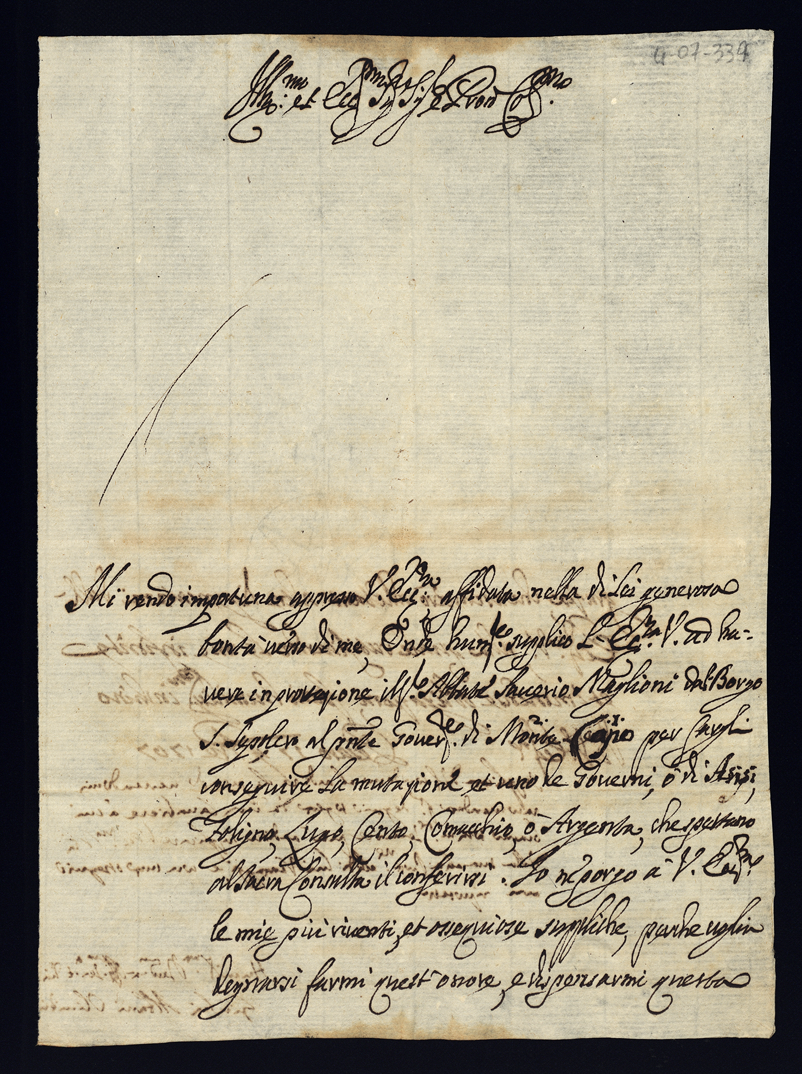 4-07-339
Ill.mo et Ecc.mo Sig. Sig. e Pron Col.mo
Mi rendo importuna appresso V. Ecc.za affidata nella di Lei generosa
bontà verso di me, Onde humil.te supplico L'Ecc.za V. ad ha-
vere in protezione il Sig.re Abbate Saverio Maglioni dal Borgo
S. Sepolcro al pnte Gover.re di Monte per fargli
conseguire la mutazione et uno de Governi, ò di Assisi,
Foligno, Lugo, Cento, Comacchio, ò Argenta, che spettano
al Sacra Consulta il conferirsi. Io ne porgo à V. Ecc.za
le mie più riverenti, et ossequiose suppliche, perche voglia
degnarsi farmi quest'onore, e dispensarmi questa